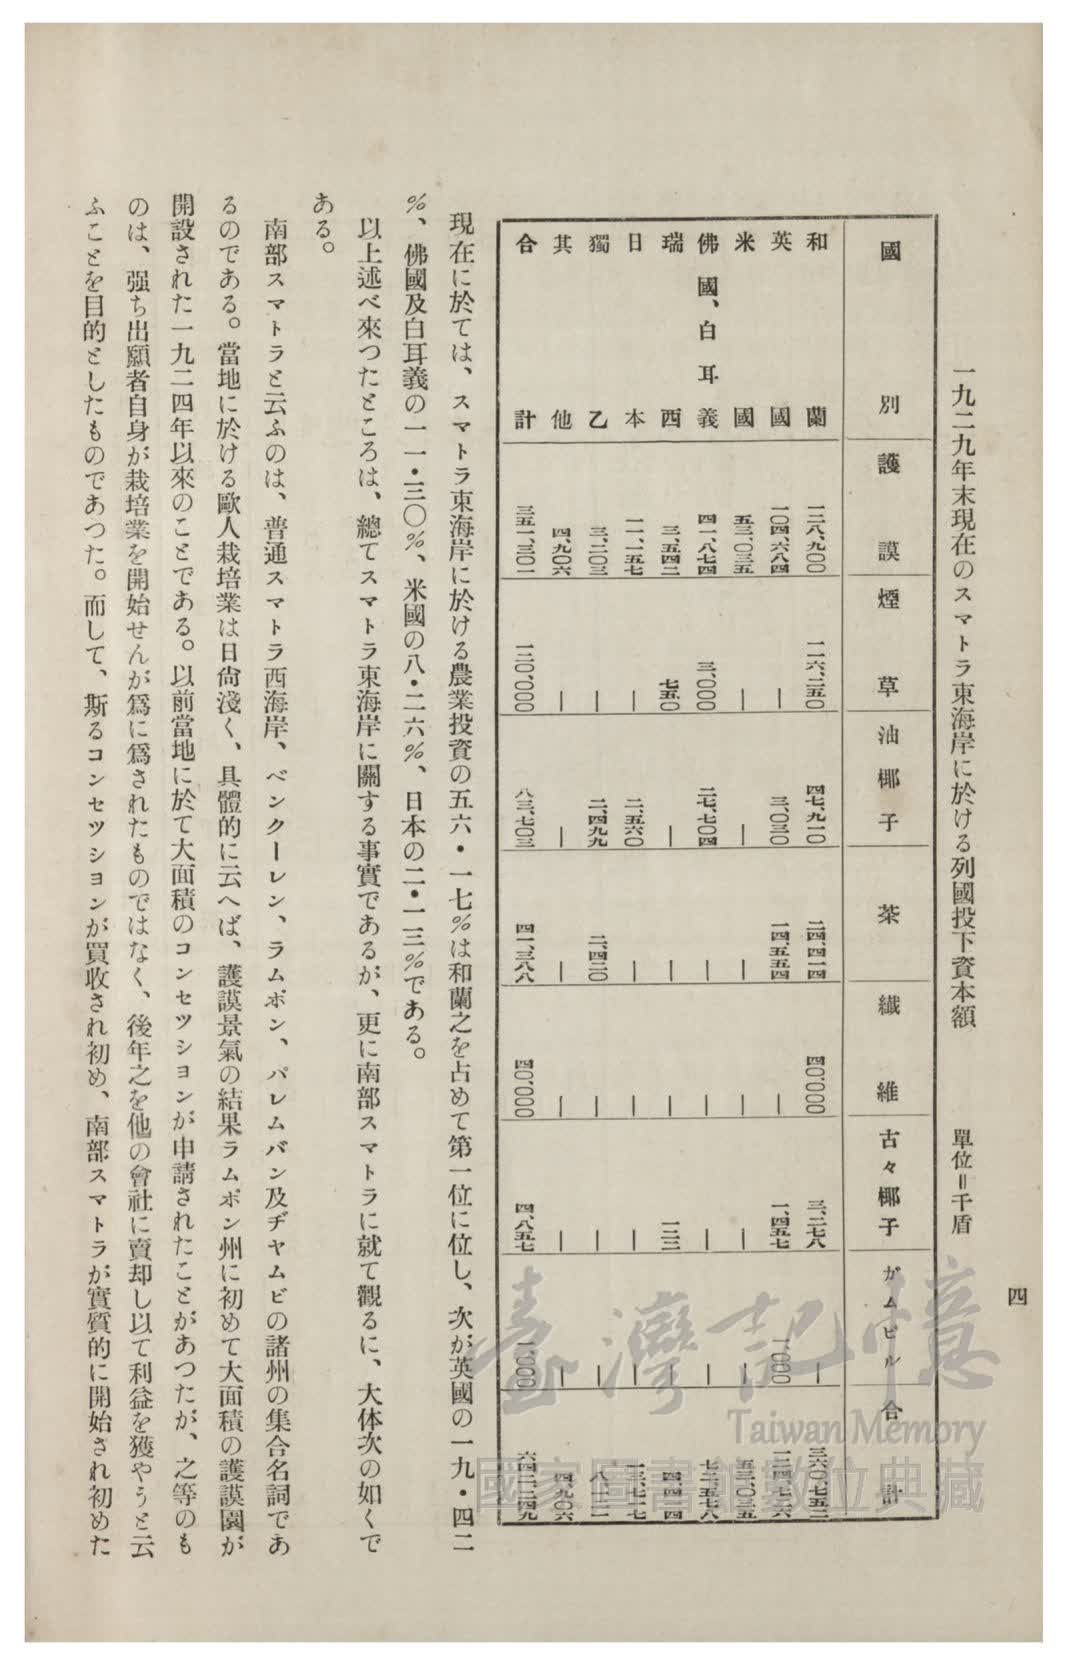 四
一九二九年末現在のスマトラ東海岸に於ける列國投下資本額　單位=千盾
國別　護謨　煙草　油椰子　茶　纖維　古々椰子　ガムビル　合計
和蘭　一二八、九〇〇　一一六、二五〇　四七、九一〇　二四、四一四　四〇、〇〇〇　三、二七八　―　三六〇、七五二
英國　一〇四、六八四　―　三、〇三〇　一四、五五四　―　一、四五七　一、〇〇〇　一二四、七二六
米國　五三、〇三五　―　―　―　―　―　―　五三、〇三五
佛國、白耳義　四一、八七四　三、〇〇〇　二七、七〇四　―　―　―　―　七二、五七八
瑞西　三、五四二　七五〇　―　―　―　一二二　―　四、四一四
日本　一一、一五七　―　二、五六〇　―　―　―　―　一三、七一七
獨乙　三、二〇三　―　二、四九九　二、四二〇　―　―　―　八、一二二
其他　四、九〇六　―　―　―　―　―　―　四、九〇六
合計　三五一、三〇一　一二〇、〇〇〇　八三、七〇三　四一、三八八　四〇、〇〇〇　四、八五七　一、〇〇〇　六四二、二四九
現在に於ては、スマトラ東海岸に於ける農業投資の五六・一七％は和蘭之を占めて第一位に位し、次が英國の一九・四二
％、佛國及白耳義の一一・三〇％、米國の八・二六％、日本の二・一三％である。
以上述べ來つたところは、總てスマトラ東海岸に關する事實であるが、更に南部スマトラに就て觀るに、大体次の如くで
ある。
南部スマトラと云ふのは、普通スマトラ西海岸、ベンクーレン、ラムポン、パレムバン及ヂヤムビの諸州の集合名詞であ
るのである。當地に於ける歐人栽培業は日尙淺く、具體的に云へば、護謨景氣の結果ラムポン州に初めて大面積の護謨園が
開設された一九二四年以來のことである。以前當地に於て大面積のコンセツシヨンが申請されたことがあつたが、之等のも
のは、强ち出願者自身が栽培業を開始せんが爲に爲されたものではなく、後年之を他の會社に賣却し以て利益を獲やうと云
ふことを目的としたものであつた。而して、斯るコンセツシヨンが買收され初め、南部スマトラが實質的に開始され初めた
臺灣記憶
Taiwan Memory
國家圖書館數位典藏